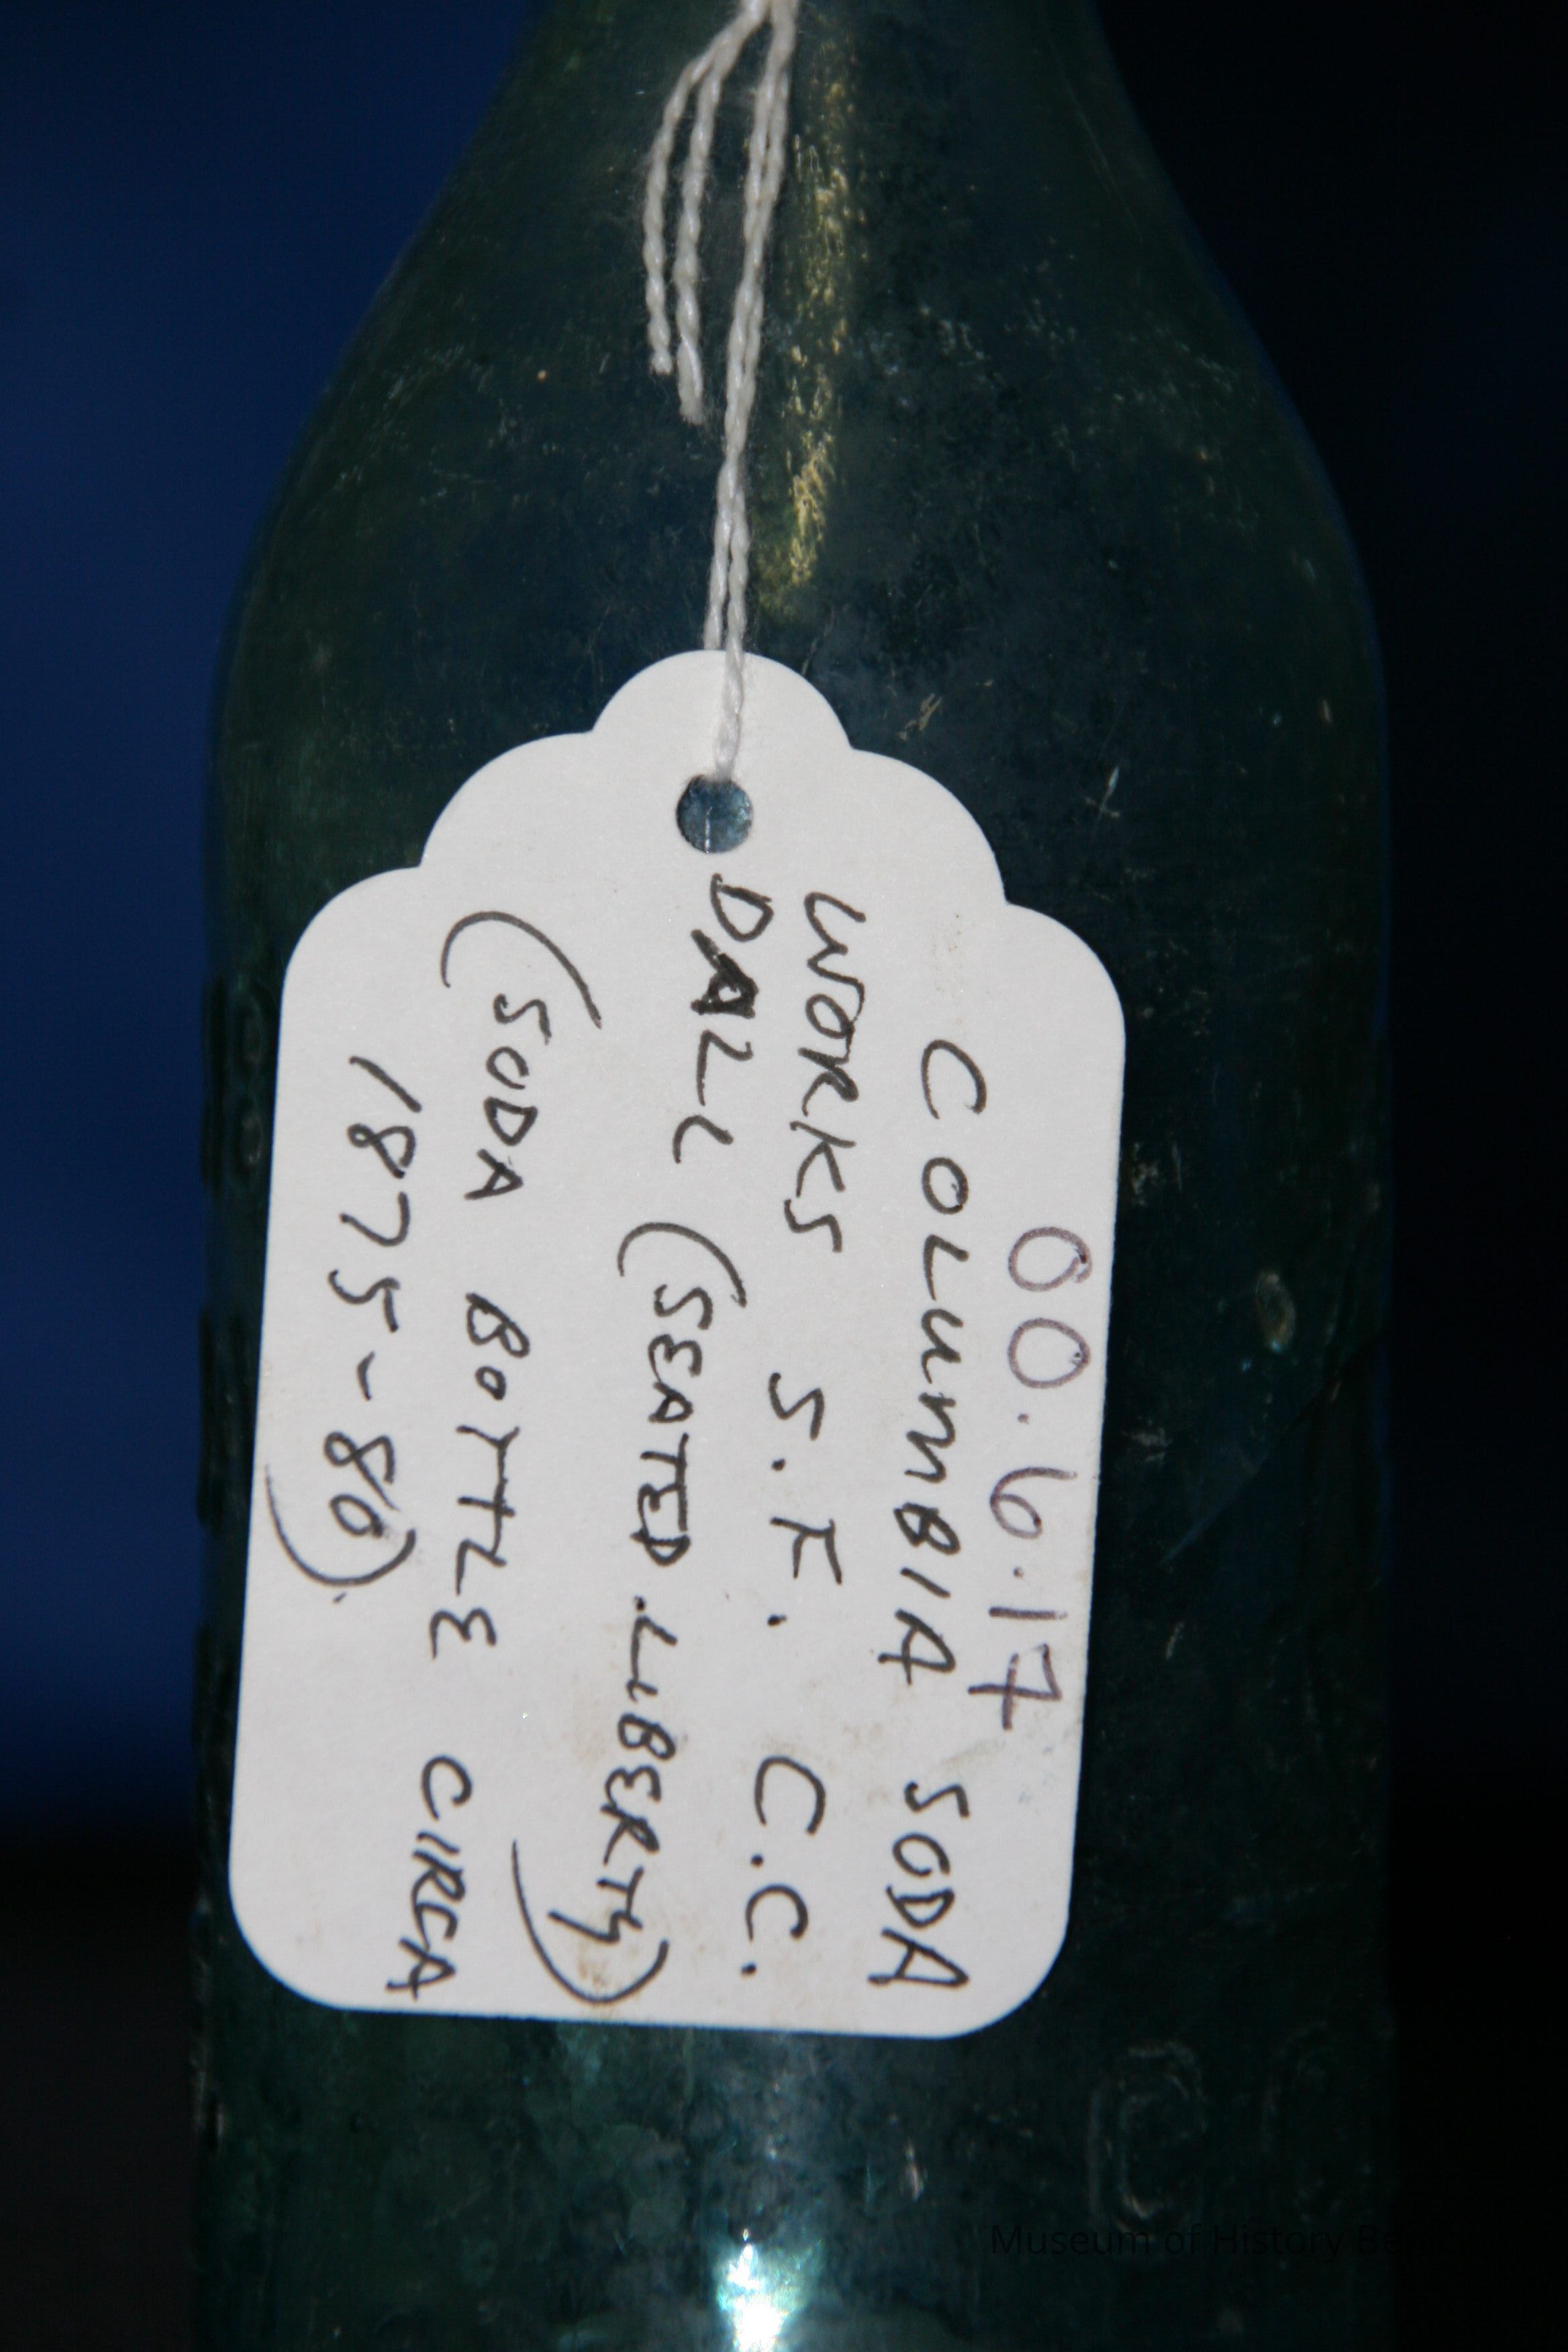 00.6.17
COLUMBIA SODA
WORKS S.F. C.C.
DALL (SEATED LIBERTY)
(SODA BOTTLE CIRCA
1875-80)
Museum of History Be